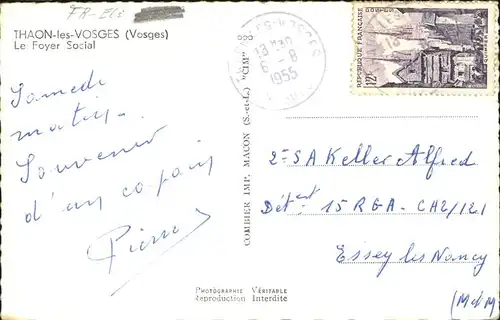 FR-Els
THAON-les-VOSGES (Vosges)
Le Foyer Social
Samedi
matin.
Souvenir
d'un copain
Pierre
COMBIER IMP. MACON (S.-et-L.) "CIM"
VOSGES
13 H30
6-8
1955
REPUBLIQUE FRANÇAISE
12F
2e SA Keller Alfred
Détent 15 RGA - CA2/121
Essey les Nancy
(M et M
PHOTOGRAPHIE VÉRITABLE
Reproduction Interdite